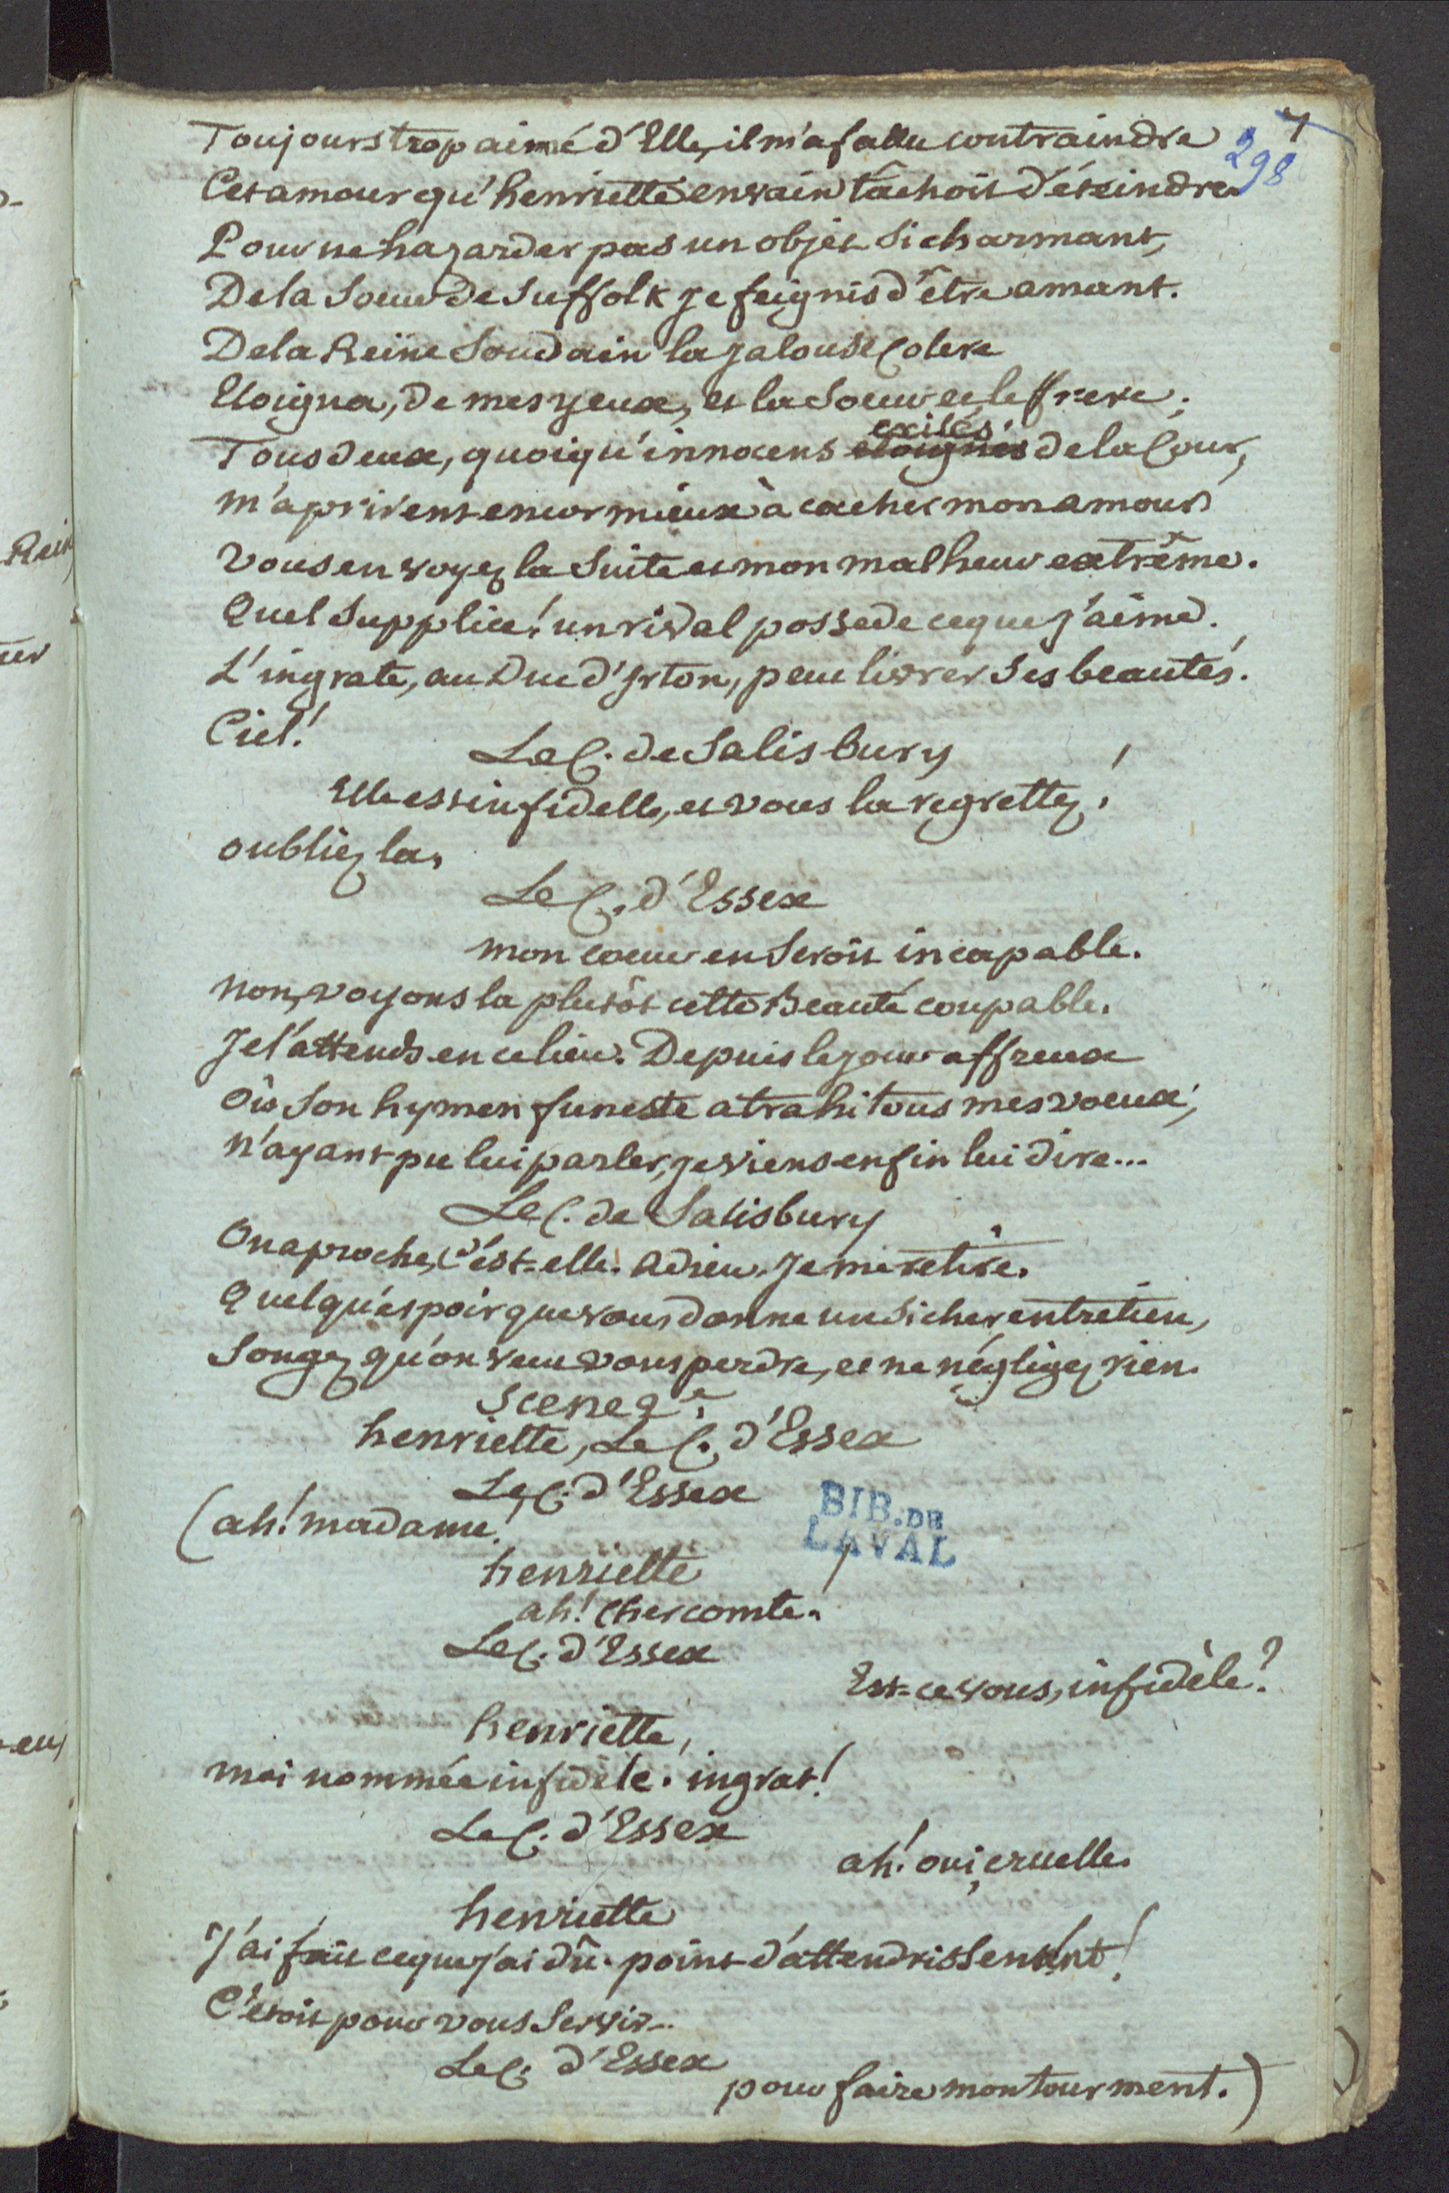 7
298
Toujours trop aimé d'Elle, il m'a fallu contraindre
Cet amour qu'henriette en vain tâchoit d'éteindre.
Pour ne hazarder pas un objet si charmant,
De la Soeur de Suffolk je feignis d'être amant.
De la Reine Soudain la jalouse Colere
Eloigna, de mes yeux, et la Soeur et le frere;
exilés
Tous deux, quoiqu'innocens eloignés de la Cour,
m'aprirent encor mieux à cacher mon amour
vous en voyez la Suite et mon malheur extrême.
Quel Supplice! un rival possede ce que j'aime.
L'ingrate, au Duc d'Irton, peut livrer Ses beautés.
Ciel!
Le C. de Salisbury
Elle est infidelle, et vous la regrettez!
oubliez la.
Le C. d'Essex
mon coeur en Seroit incapable.
non, voyons la plutôt cette Beauté coupable.
Je l'attends en ce lieu. Depuis le jour affreux
Où Son hymen funeste a trahi tous mes voeux,
n'ayant pu lui parler, je viens enfin lui dire...
Le C. de Salisbury
On aproche, c'est-elle. Adieu. Je me retire.
Quelqu'espoir que vous donne un Si cher entretien,
Songez qu'on veut vous perdre, et ne négligez rien.
Scene 2e.
henriette, Le C. d'Essex
Le C. d'Essex
(ah! madame!
henriette
ah! cher comte!
Le C. d'Essex
Est-ce vous, infidèle?
henriette,
moi nommée infidèle. ingrat!
Le C. d'Essex
ah! oui, cruelle.
henriette
J'ai fait ce que j'ai dû. point d'attendrissement!
C'étoit pour vous Servir...
Le C. d'Essex
pour faire mon tourment.)
BIB. DE
LAVAL
Rein